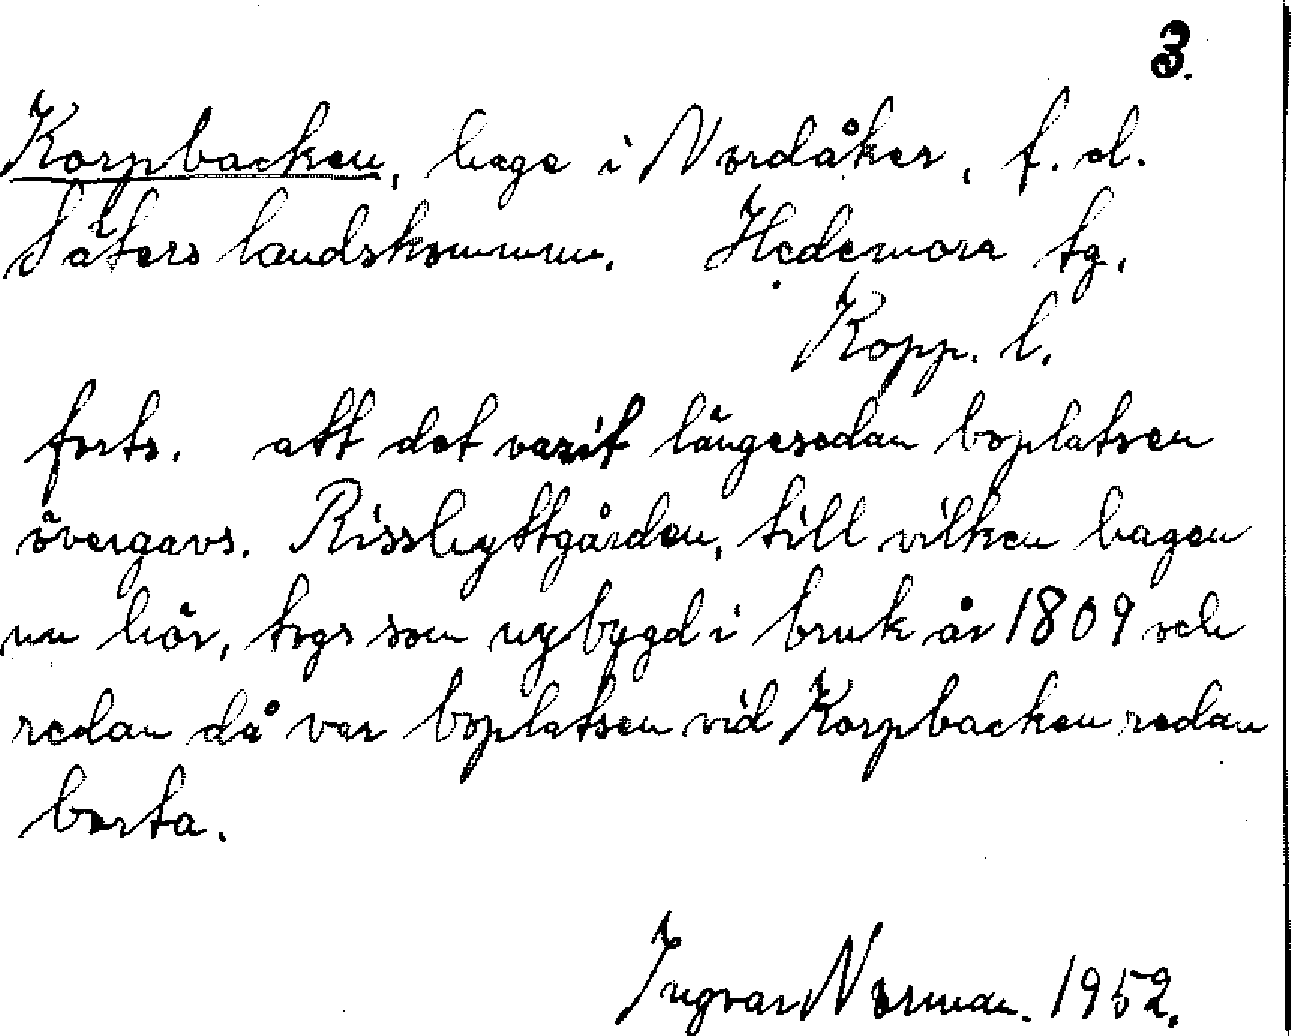 3.
Korpbacken, hage i Nordåker, f.d.
Säters landskommun. Hedemora tg.
Kopp. l.
forts. att det varit längesedan boplatsen
övergavs. Risshyttgården, till vilken hagen
nu hör, togs som nybygd i bruk år 1809 och
redan då var boplatsen vid Korpbacken redan
borta.
Ingvar Norman. 1952.